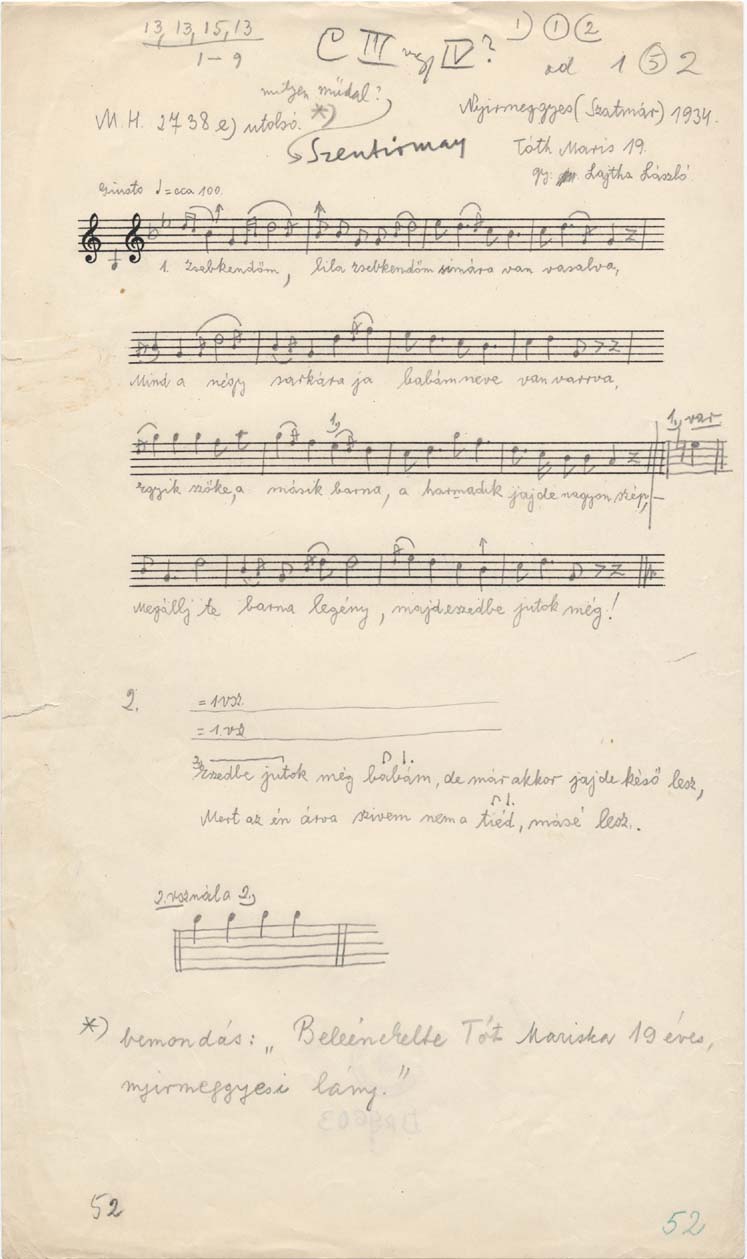 13, 13, 15, 13
1-9
C III vagy IV?
1) ① ②
ad 1 ⑤ 2
milyen műdal?
M.H. 2738 e) utolsó. *)
Szentirmay
Nyirmeggyes (Szatmár) 1934.
Tóth Maris 19.
gy: Lajtha László
Giusto ♩=cca 100.
1. Zsebkendőm, lila zsebkendőm simára van vasalva,
Mind a négy sarkára ja babám neve van varrva,
1,
1, var
Egyik szőke, a másik barna, a harmadik jajde nagyon szép,
Megállj te barna legény, majd eszedbe jutok még!
2. = 1 vsz.
= 1. vsz
Eszedbe jutok még babám, de már akkor jajde késő lesz,
Mert az én árva szivem nem a tiéd, másé lesz.
2. vsznál a 2,
*) bemondás: „Beleénekelte Tót Mariska 19 éves,
nyirmeggyesi lány."
52
52